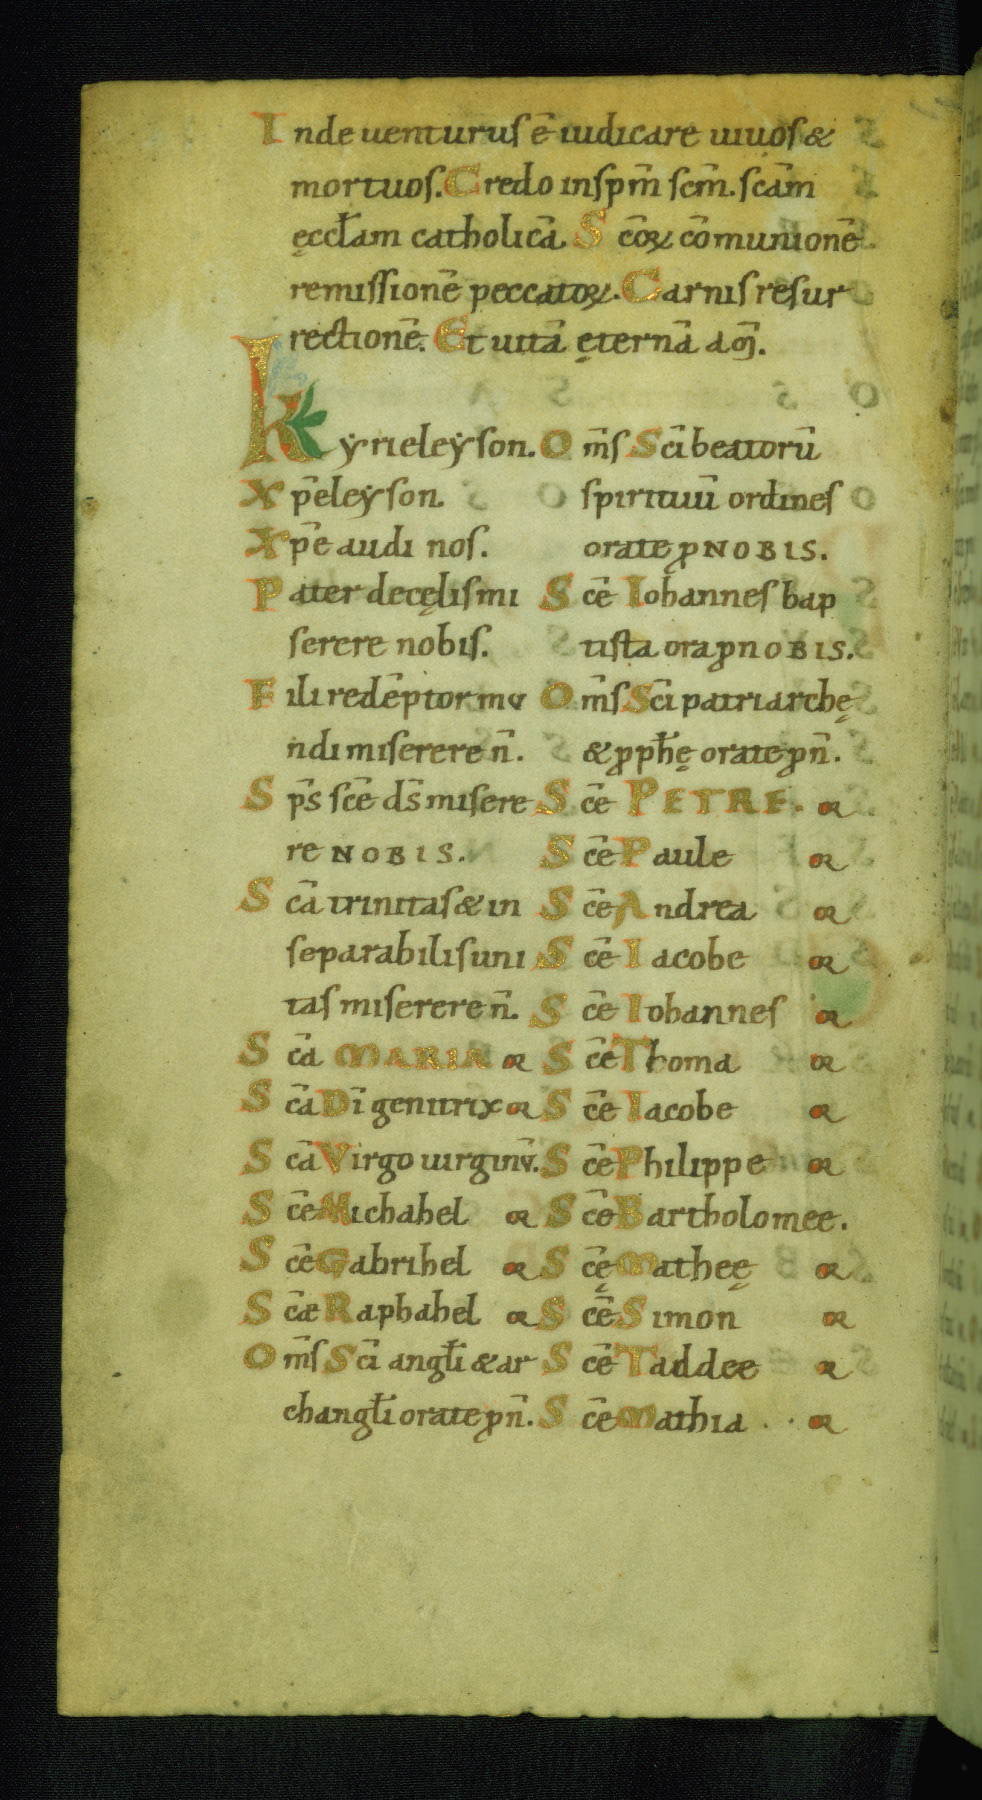 Inde uenturus ē iudicare uiuos &
mortuos. Credo in sp̄m sc̄m. sc̄am
ęccl̄am catholicā. Sc̄oꝝ cōmunionē.
remissionē peccatoꝝ. Carnis resur
rectionē. Et uitā ęternā am̄.
Kẏrieleẏson.
Xp̄eleẏson.
Xp̄e audi nos.
Pater de cęlis mi
serere nobis.
Fili redēptor mu
ndi miserere n̄.
Sp̄s sc̄e ds̄ misere
re NOBIS.
Sc̄a trinitas & in
separabilis uni
tas miserere n̄.
Sc̄a MARIA or
Sc̄a Dī genitrix or
Sc̄a Virgo uirginū.
Sc̄e Michahel or
Sc̄e Gabrihel or
Sc̄æ Raphahel or
Om̄s Sc̄i angl̄i & ar
changl̄i orate ꝓ n̄.
Om̄s Sc̄i beatorū
spirituū ordines
orate ꝓ NOBIS.
Sc̄e Iohannes bap
tista ora ꝓ nOBIS.
Om̄s Sc̄i patriarchę
& ꝓph̄ę orate ꝓ n̄.
Sc̄e PETRE. or
Sc̄e Paule or
Sc̄e Andrea or
Sc̄e Iacobe or
Sc̄e Iohannes or
Sc̄e Thoma or
Sc̄e Iacobe or
Sc̄e Philippe or
Sc̄e Bartholomee.
Sc̄ę Matheę or
Sc̄e Simon or
Sc̄e Taddee or
Sc̄e Mathia . . or